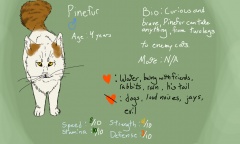 Pinefur
Age: 4 years
Bio: Curious and
brave, Pinefur can take
anything, from two legs
to enemy cats
Mate: N/A
: Water, being with friends,
rabbits, rain, his tail
: dogs, loud noises, jays,
evil
Speed: /10 Strength: /10
Stamina: /10 Defense: /10